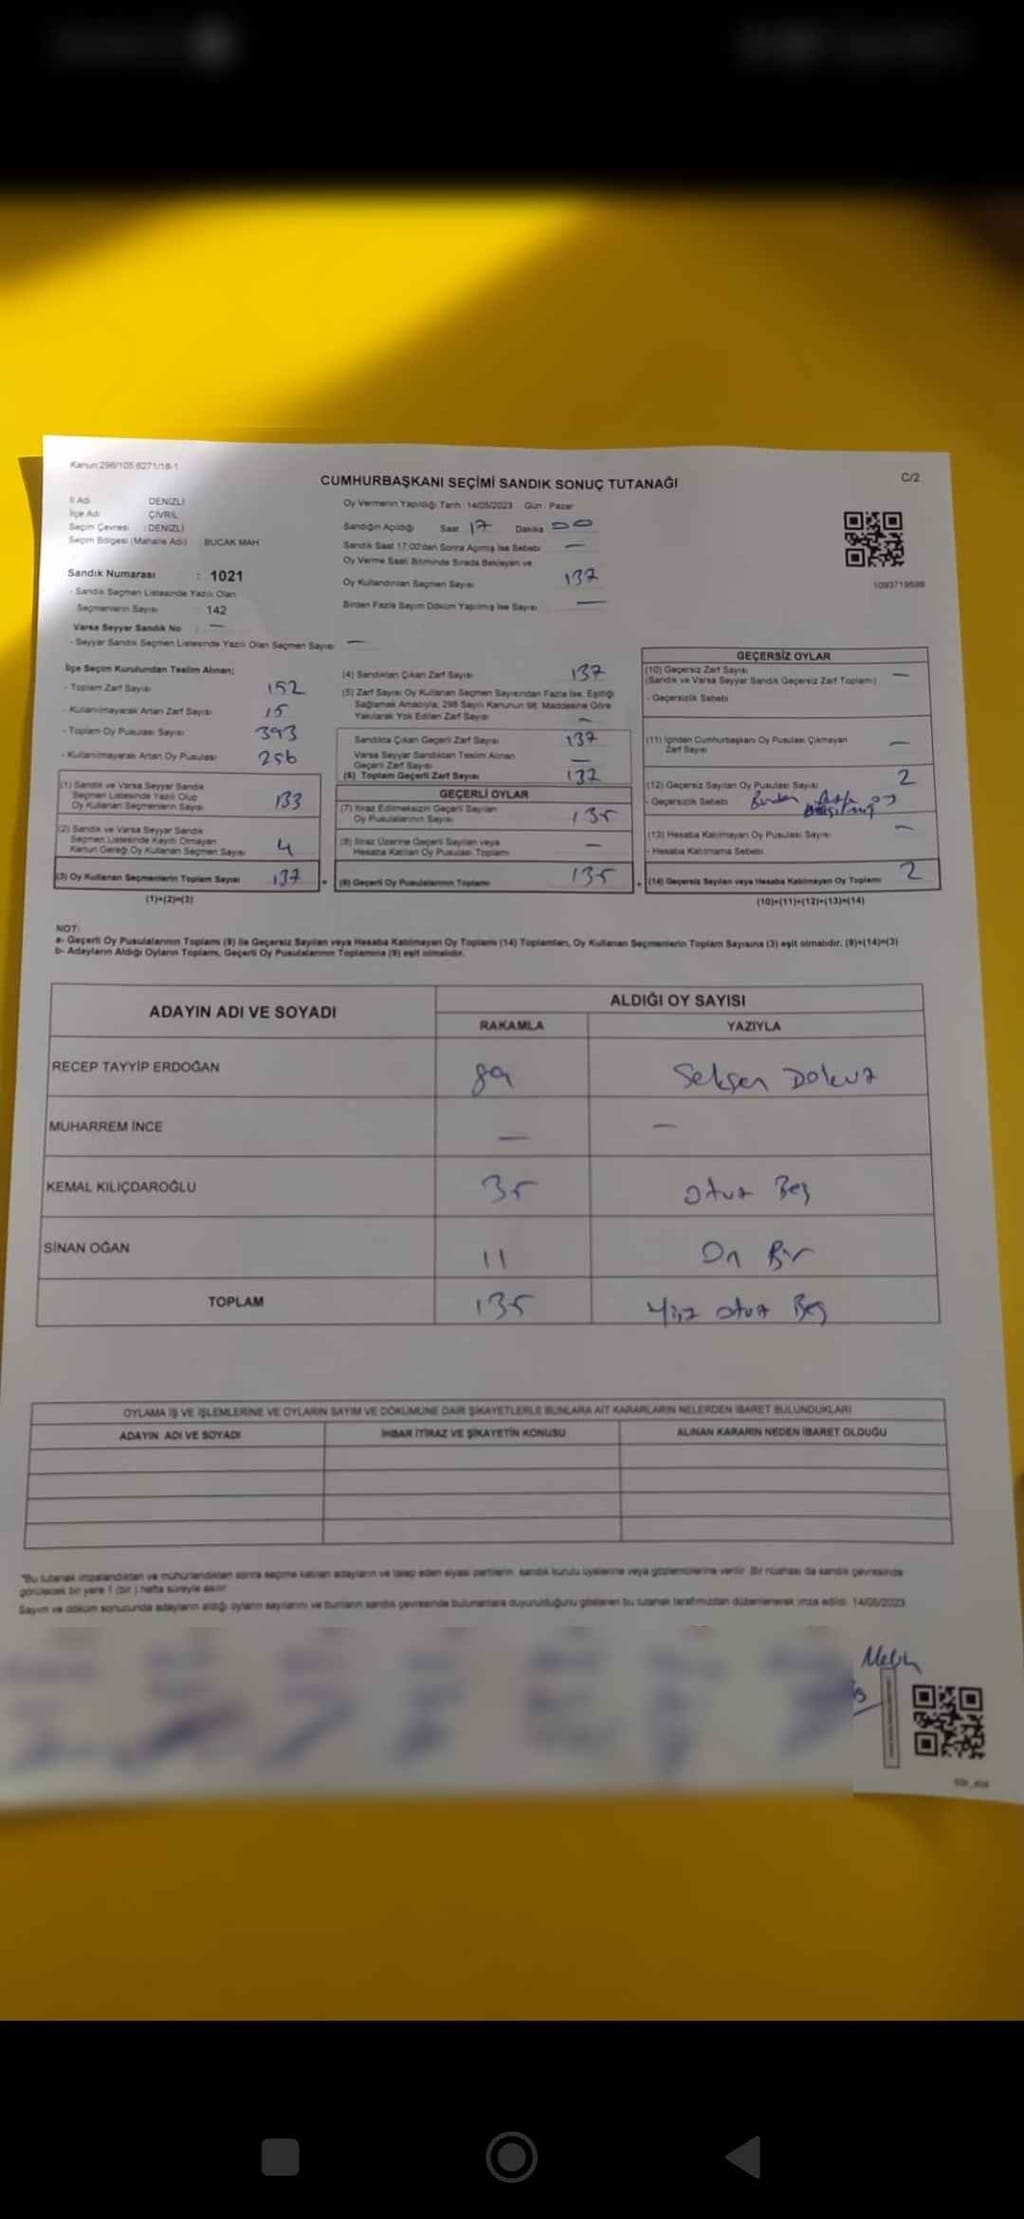 Kanun:298/105 6271/18-1
CUMHURBAŞKANI SEÇİMİ SANDIK SONUÇ TUTANAĞI
C/2
İl Adı DENİZLİ
İlçe Adı ÇİVRİL
Seçim Çevresi : DENİZLİ
Seçim Bölgesi (Mahalle Adı) BUCAK MAH
Sandık Numarası : 1021
- Sandık Seçmen Listesinde Yazılı Olan
Seçmenlerin Sayısı : 142
Varsa Seyyar Sandık No : —
- Seyyar Sandık Seçmen Listesinde Yazılı Olan Seçmen Sayısı —
Oy Vermenin Yapıldığı Tarih : 14/05/2023 Gün : Pazar
Sandığın Açıldığı Saat 17 Dakika 00
Sandık Saat 17:00'den Sonra Açılmış İse Sebebi —
Oy Verme Saati Bitiminde Sırada Bekleyen ve
Oy Kullandırılan Seçmen Sayısı 137
Birden Fazla Sayım Döküm Yapılmış İse Sayısı —
1093719588
İlçe Seçim Kurulundan Teslim Alınan;
- Toplam Zarf Sayısı 152
- Kullanılmayarak Artan Zarf Sayısı 15
- Toplam Oy Pusulası Sayısı 393
- Kullanılmayarak Artan Oy Pusulası 256
(1) Sandık ve Varsa Seyyar Sandık
Seçmen Listesinde Yazılı Olup
Oy Kullanan Seçmenlerin Sayısı 133
(2) Sandık ve Varsa Seyyar Sandık
Seçmen Listesinde Kayıtlı Olmayan
Kanun Gereği Oy Kullanan Seçmen Sayısı 4
(3) Oy Kullanan Seçmenlerin Toplam Sayısı 137
(1)+(2)=(3)
(4) Sandıktan Çıkan Zarf Sayısı 137
(5) Zarf Sayısı Oy Kullanan Seçmen Sayısından Fazla İse, Eşitliği
Sağlamak Amacıyla; 298 Sayılı Kanunun 98. Maddesine Göre
Yakılarak Yok Edilen Zarf Sayısı —
Sandıkta Çıkan Geçerli Zarf Sayısı 137
Varsa Seyyar Sandıktan Teslim Alınan
Geçerli Zarf Sayısı —
(6) Toplam Geçerli Zarf Sayısı 137
GEÇERLİ OYLAR
(7) İtiraz Edilmeksizin Geçerli Sayılan
Oy Pusulalarının Sayısı 135
(8) İtiraz Üzerine Geçerli Sayılan veya
Hesaba Katılan Oy Pusulası Toplamı —
(9) Geçerli Oy Pusulalarının Toplamı 135
GEÇERSİZ OYLAR
(10) Geçersiz Zarf Sayısı
(Sandık ve Varsa Seyyar Sandık Geçersiz Zarf Toplamı) —
- Geçersizlik Sebebi
(11) İçinden Cumhurbaşkanı Oy Pusulası Çıkmayan
Zarf Sayısı —
(12) Geçersiz Sayılan Oy Pusulası Sayısı 2
- Geçersizlik Sebebi Birden
(13) Hesaba Katılmayan Oy Pusulası Sayısı —
- Hesaba Katılmama Sebebi
(14) Geçersiz Sayılan veya Hesaba Katılmayan Oy Toplamı 2
(10)+(11)+(12)+(13)=(14)
NOT:
a- Geçerli Oy Pusulalarının Toplamı (9) ile Geçersiz Sayılan veya Hesaba Katılmayan Oy Toplamı (14) Toplamları, Oy Kullanan Seçmenlerin Toplam Sayısına (3) eşit olmalıdır. (9)+(14)=(3)
b- Adayların Aldığı Oyların Toplamı, Geçerli Oy Pusulalarının Toplamına (9) eşit olmalıdır.
ADAYIN ADI VE SOYADI
ALDIĞI OY SAYISI
RAKAMLA YAZIYLA
RECEP TAYYİP ERDOĞAN 89 Seksen Dokuz
MUHARREM İNCE — —
KEMAL KILIÇDAROĞLU 35 otuz Beş
SİNAN OĞAN 11 On Bir
TOPLAM 135 Yüz otuz Beş
OYLAMA İŞ VE İŞLEMLERİNE VE OYLARIN SAYIM VE DÖKÜMÜNE DAİR ŞİKAYETLERLE BUNLARA AİT KARARLARIN NELERDEN İBARET BULUNDUKLARI
ADAYIN ADI VE SOYADI İHBAR İTİRAZ VE ŞİKAYETİN KONUSU ALINAN KARARIN NEDEN İBARET OLDUĞU
"Bu tutanak imzalandıktan ve mühürlendikten sonra seçime katılan adayların ve talep eden siyasi partilerin sandık kurulu üyelerine veya gözlemcilerine verilir. Bir nüshası da sandık çevresinde
görülecek bir yere 1 (bir ) hafta süreyle asılır
Sayım ve döküm sonucunda adayların aldığı oyların sayılarını ve bunların sandık çevresinde bulunanlara duyurulduğunu gösteren bu tutanak tarafımızdan düzenlenerek imza edildi. 14/05/2023
Melih